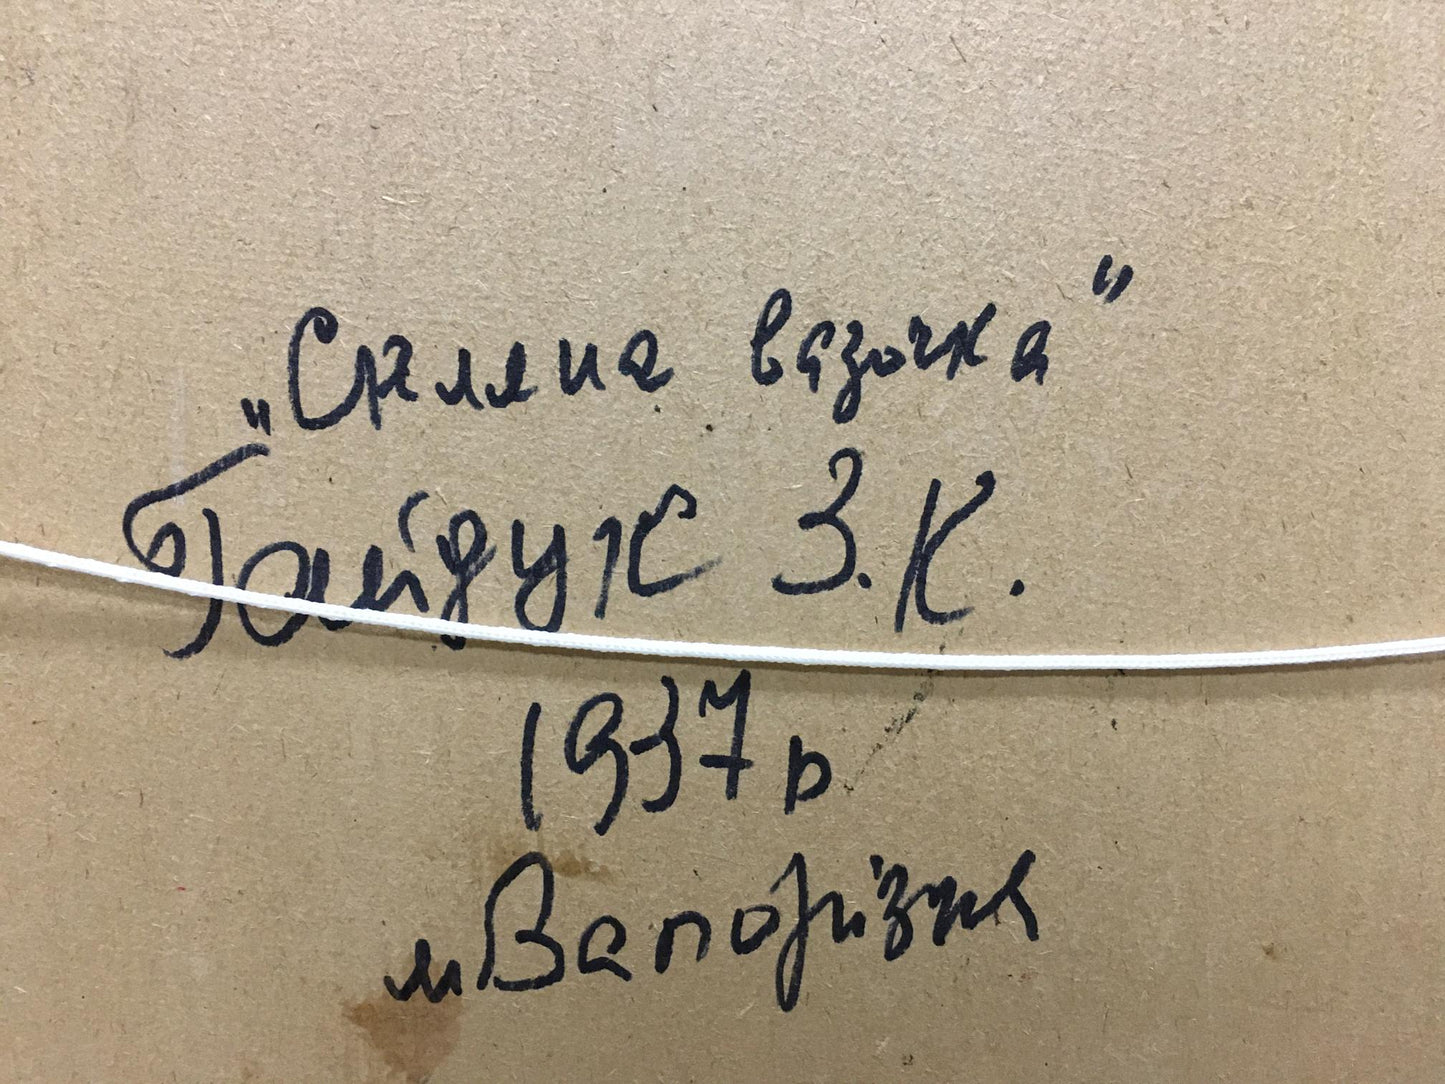 „Скляна вазочка"
Гайдук З.К.
1937 р
м Запоріжжя